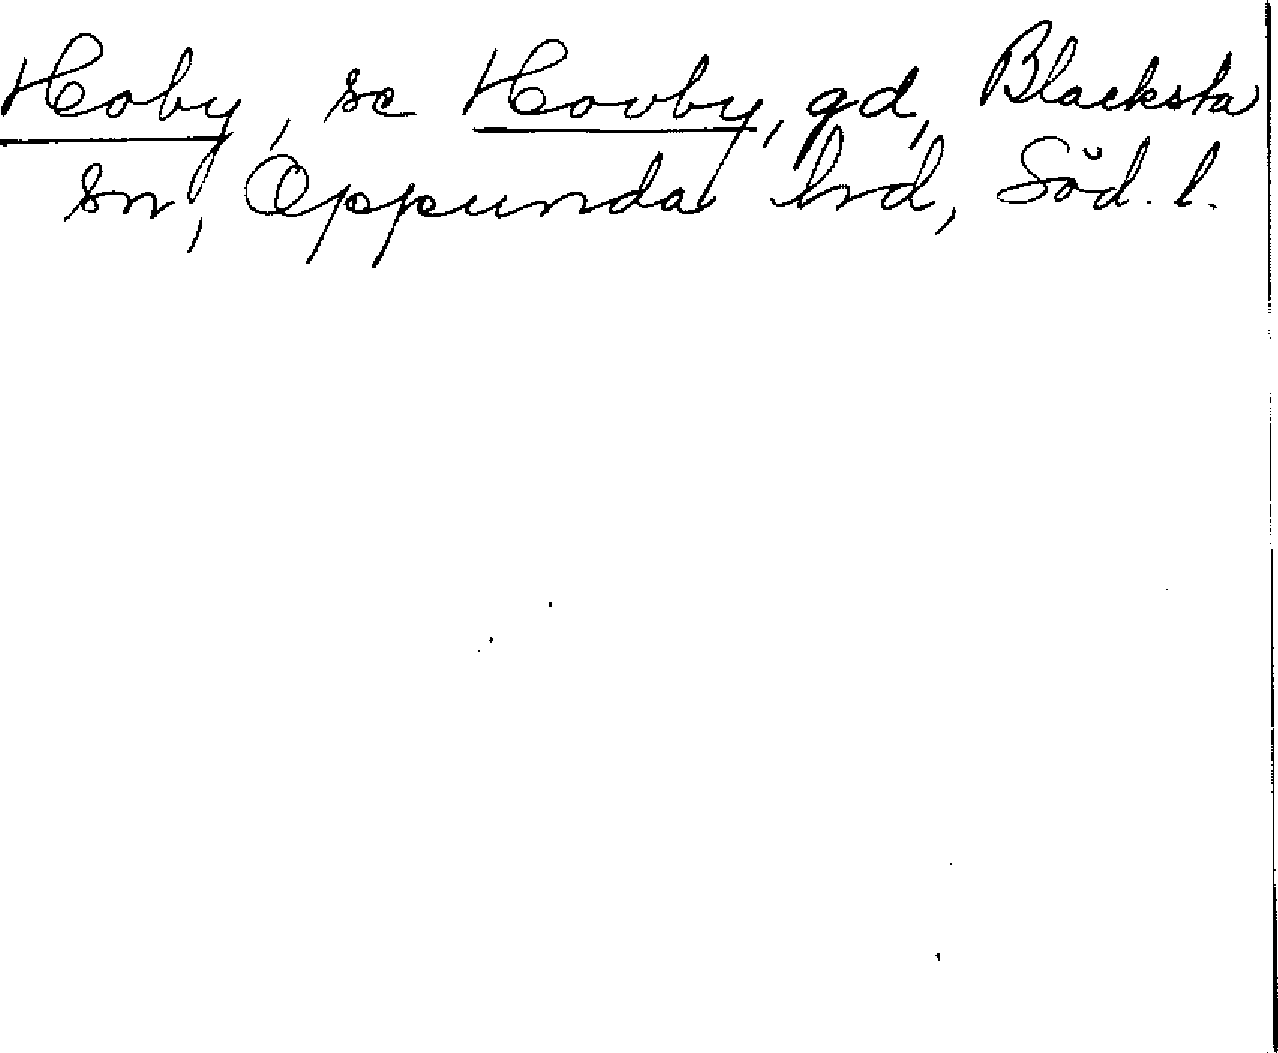 Hoby, se Hovby, gd, Blacksta
sn, Oppunda hrd, Söd. l.